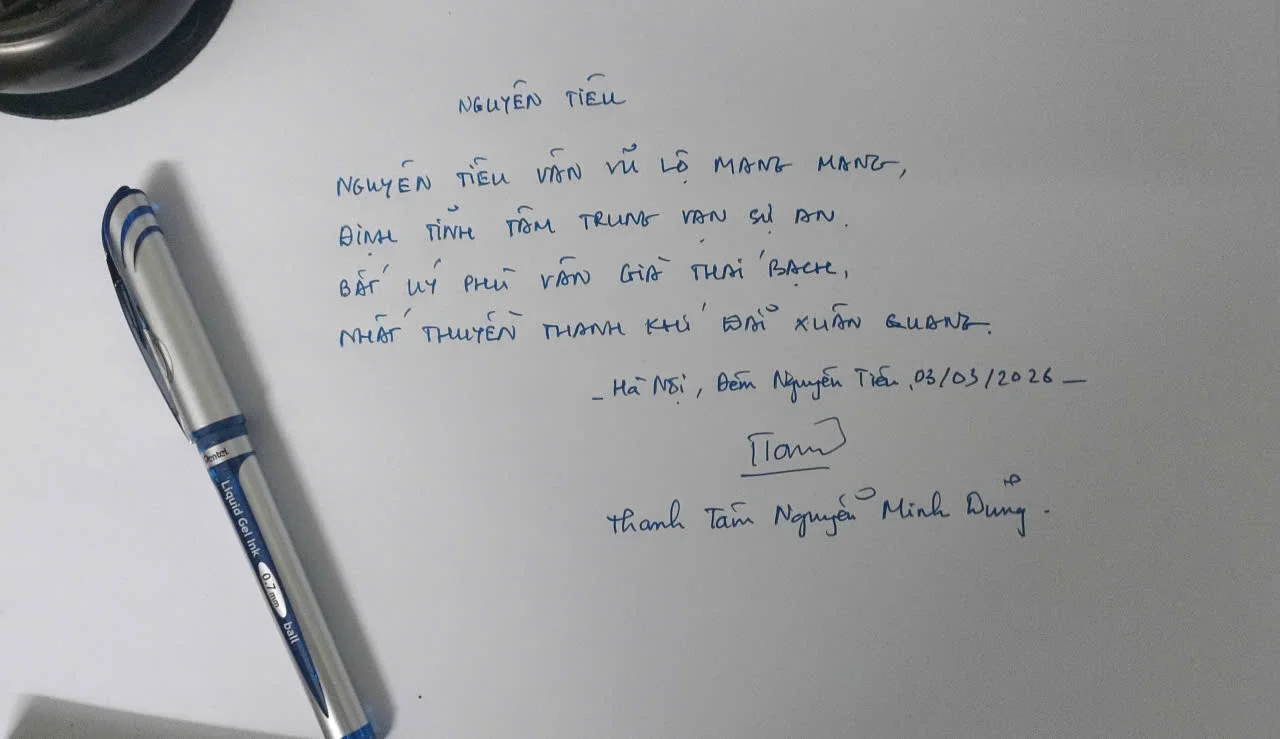 NGUYÊN TIÊU
NGUYÊN TIÊU VÂN VŨ LỘ MANG MANG,
ĐỊNH TĨNH TÂM TRUNG VẠN SỰ AN.
BẤT UÝ PHÙ VÂN GIÀ THÁI BẠCH,
NHẤT THUYỀN THANH KHÚ ĐÁI XUÂN QUANG.
- Hà Nội, Đêm Nguyên Tiêu, 03/03/2026 -
Thanh Tâm Nguyễn Minh Dũng.
Pentel
Liquid Gel Ink 0.7mm ball